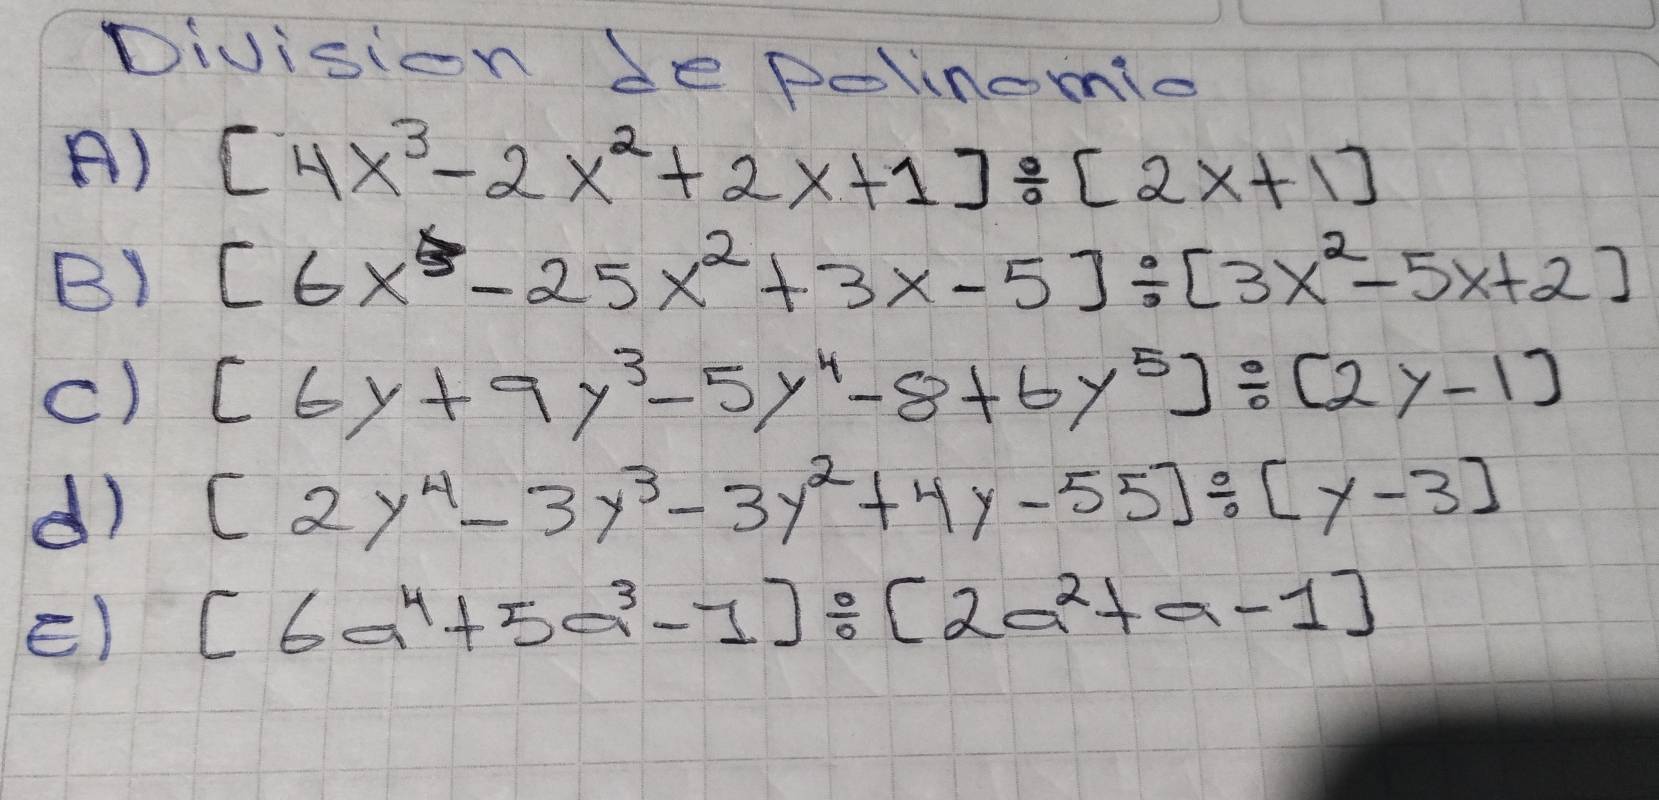 División de polinomio
A) [4x³-2x²+2x+1]÷[2x+1]
B) [6x⁵-25x²+3x-5]÷[3x²-5x+2]
C) [6y+9y³-5y⁴-8+6y⁵]÷[2y-1]
d) [2y⁴-3y³-3y²+4y-55]÷[y-3]
E) [6a⁴+5a³-1]÷[2a²+a-1]